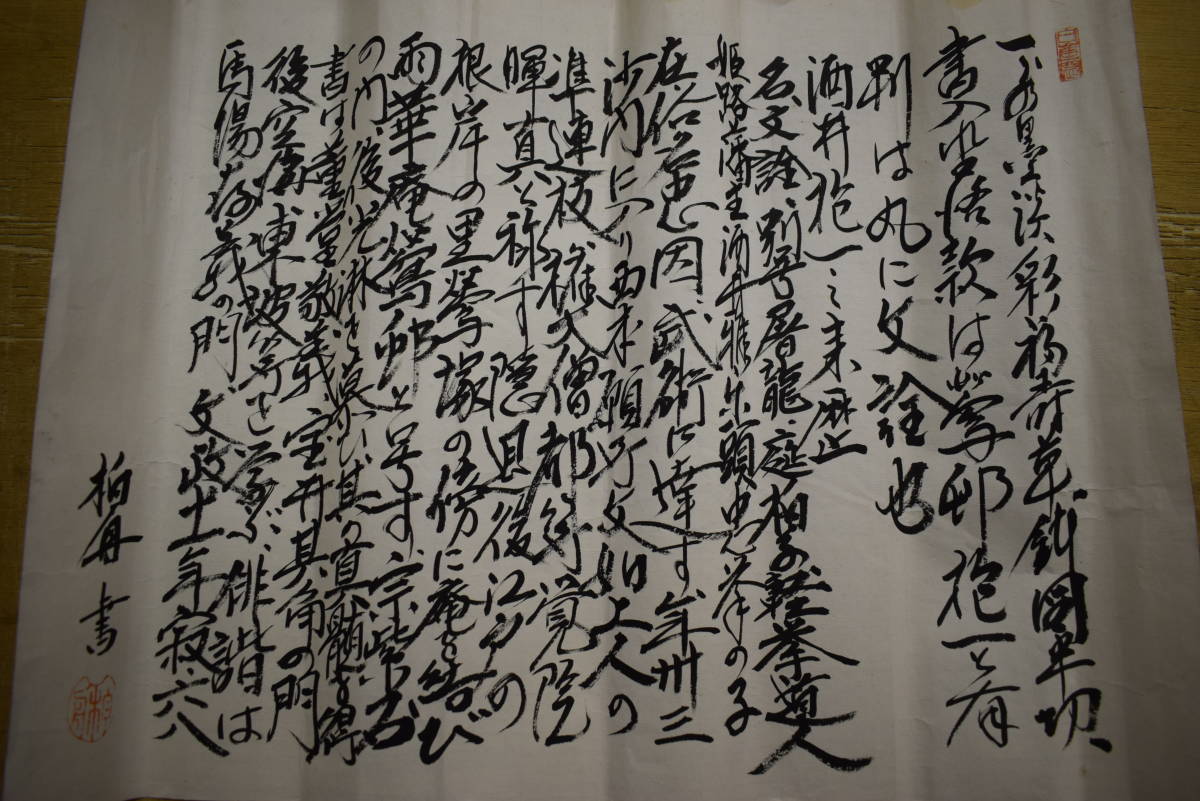 一 水墨淡彩福寿草鉢図半切、
書入出落款は鶯邨抱一と有
判は丸に文詮也
酒井抱一之来歴
名文詮、別号屠龍、庭柏子、軽挙道人
姫路藩主酒井雅楽頭忠挙の子
在俗忠因、武術に達す、年卅三
沙門に入り西本願寺文如上人の
準連枝権大僧都等覚院
暉真と称す 隠退後江戸の
根岸の里鶯塚の傍に庵を結び
雨華庵鶯邨と号す、宗紫石
の門、後光淋を慕ひ其の真髄を得
書は董堂敬義宝井其角の門
後空海東坡等を学ぶ、俳諧は
馬場存義の門 文政十一年寂六八
柏舟 書